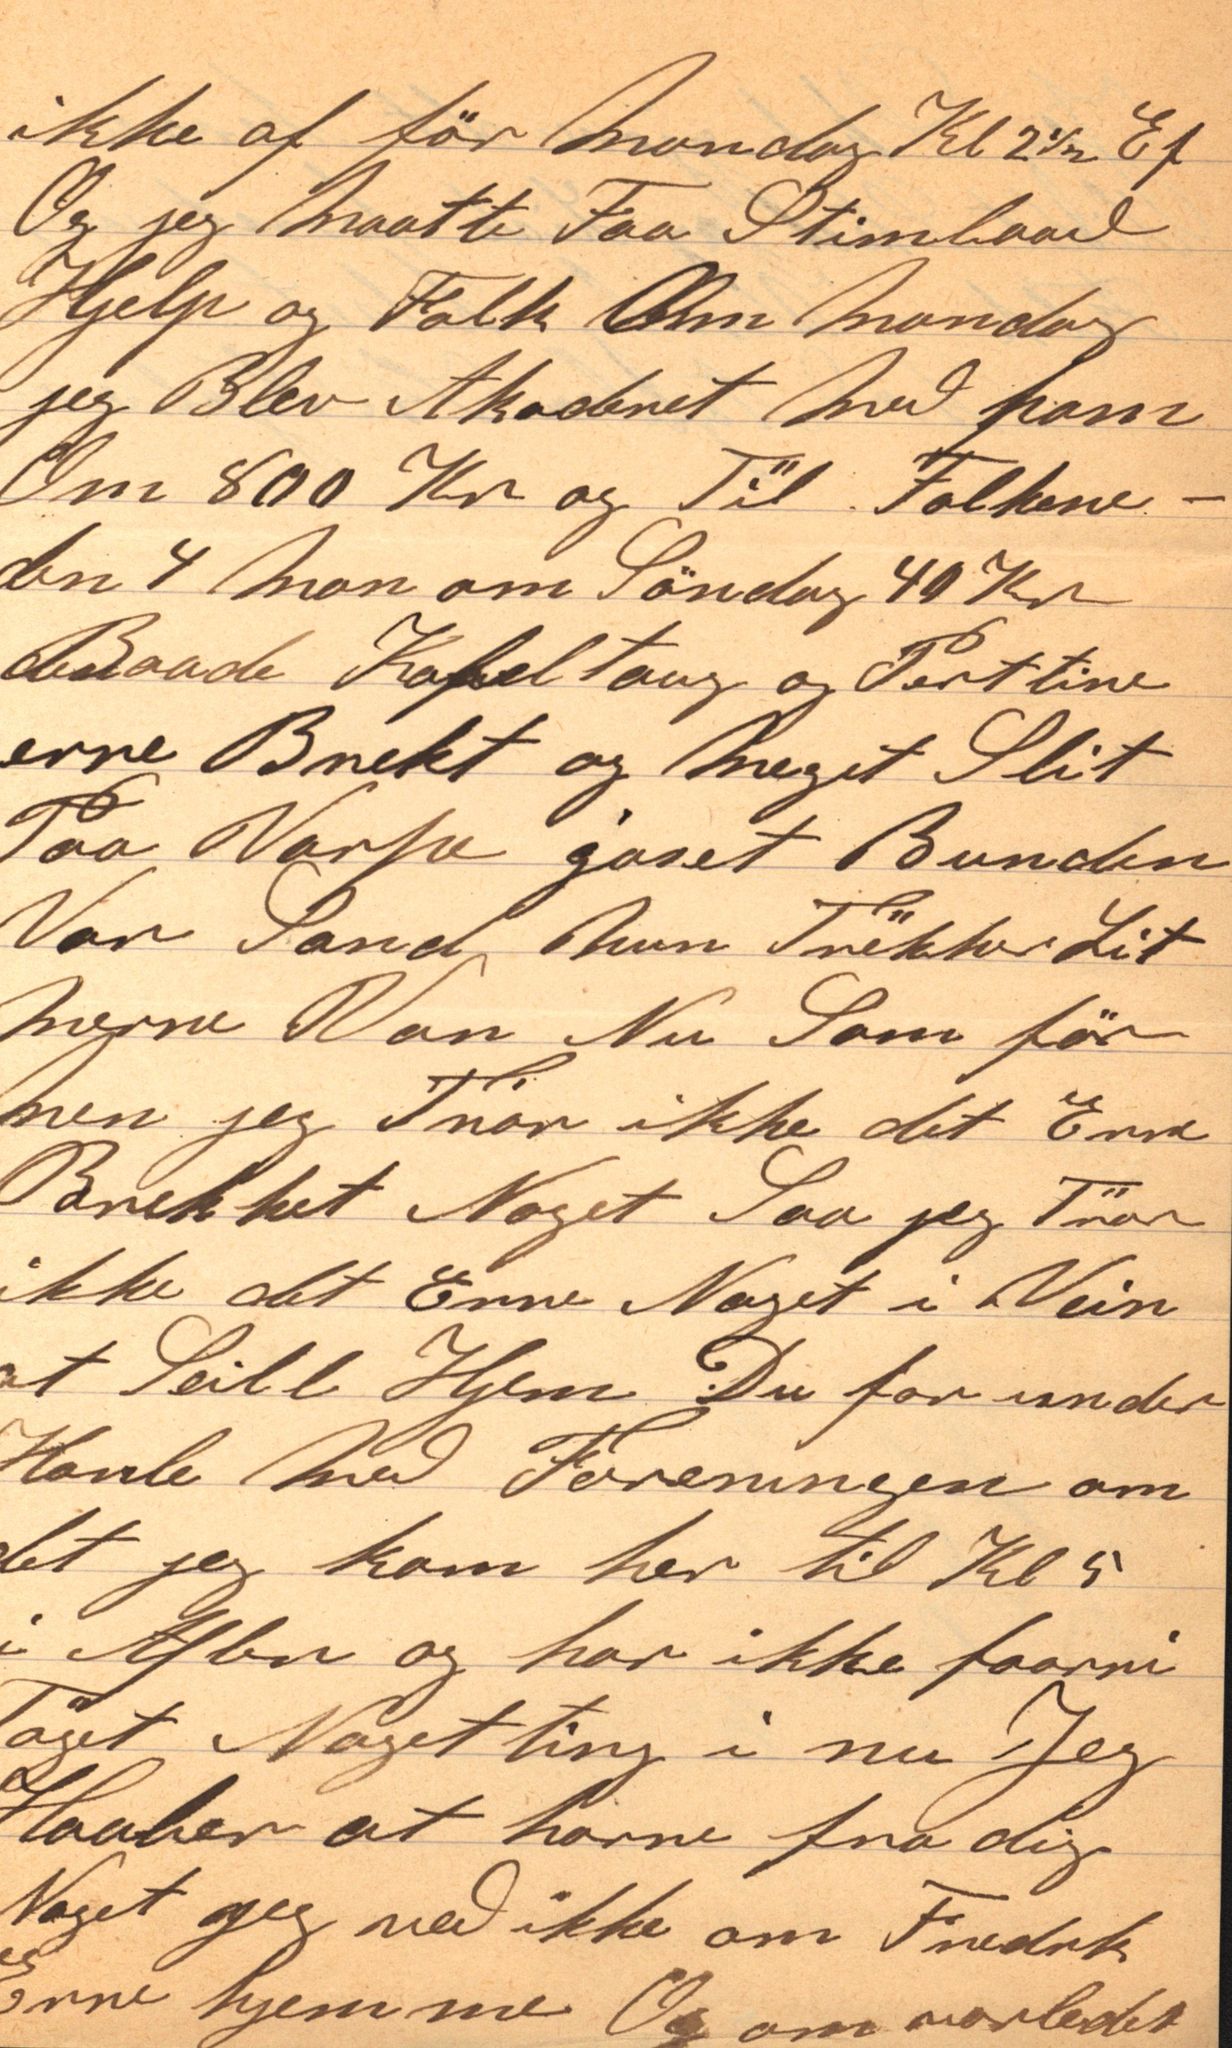 ikke af för Mandag Kl 2 1/2 Ef
Og jeg Maatte Faa Stimbaad
Hjelp og Folk Om Mandag
jeg Blev Akoderet Med ham
Om 800 Kr og Til Folkene -
den 4 Man om Söndag 40 Kr
Baade Kabeltaug og Perttine
erre Brekt og Meget Slit
Paa Varpe gaaset Bunden
Var Sand, hun Träkker Lit
Merre Van Nu Som för
men jeg Trör ikke det Erre
Brekket Noget Saa jeg Trör
ikke det Erre Noget i Vein
at Seill Hjem Du far under
Hanle Med Foreningen om
det jeg kom her til Kl 5
i Aften og har ikke faarni
Taget Nogetting i nu Jeg
Haaber at hörre fra dig
Noget jeg ved ikke om Fredrk
Erre hjemme Og om